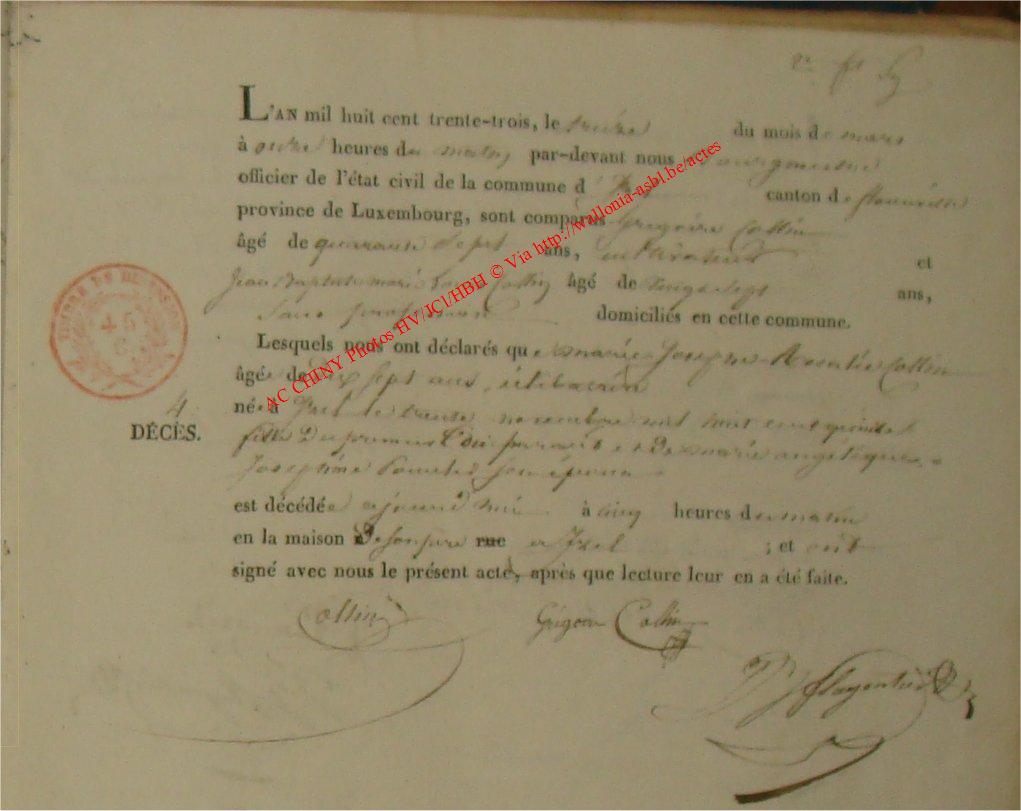 L'AN mil huit cent trente-trois, le treize du mois de mars
à onze heures du matin par-devant nous Bourgmestre
officier de l'état civil de la commune d' canton de florenville
province de Luxembourg, sont comparus Grégoire Collin
âgé de quarante sept ans, cultivateur et
Jean Baptiste marie Collin âgé de vingt sept ans,
Sans profession domiciliés en cette commune.
Lesquels nous ont déclarés que marie Josephe Collin
âgée de dix sept ans, célibataire
4
DÉCÈS.
née à Izel le trente novembre mil huit cent quinze
fille du premier et de marie angélique
Josephine son épouse
est décédée à cinq heures du matin
en la maison de son père rue a Izel ; et ont
signé avec nous le présent acte, après que lecture leur en a été faite.
Collin Grégoire Collin
AC CHINY Photos HV/JCl/HBH © Via http://wallonia-asbl.be/actes